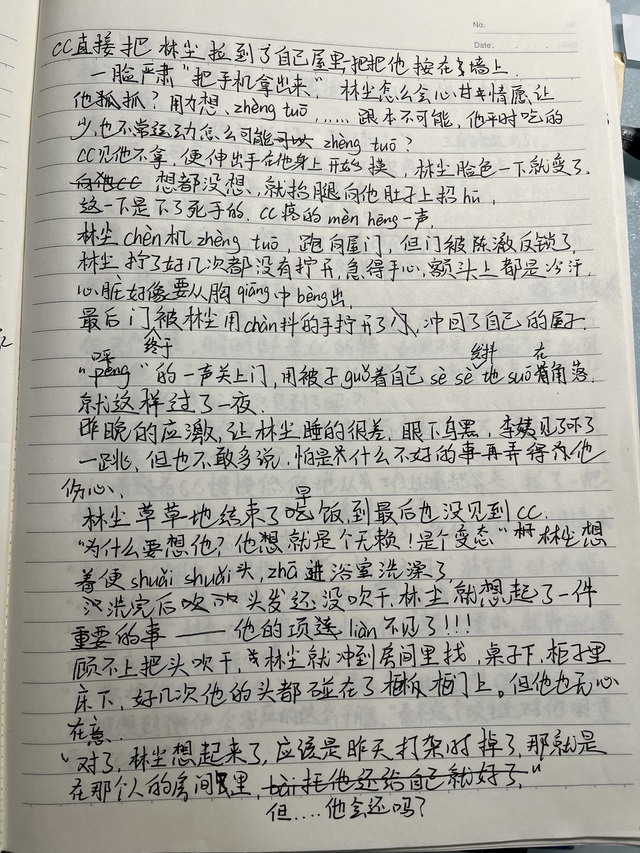 No.
Date.
CC直接把林尘拉到了自己屋里一把把他按在了墙上.
一脸严肃"把手机拿出来" 林尘怎么会心甘情愿让
他抓? 用力想、zhèng tuō,……跟本不可能,他平时吃的
少,也不常运动怎么可能 zhèng tuō?
CC见他不拿,便伸出手在他身上开始摸,林尘脸色一下就变了.
想都没想、就抬腿向他肚子上招hū,
这一下是下了死手的. CC疼的mèn hēng一声.
林尘chèn机zhèng tuō,跑向屋门,但门被陈澈反锁了,
林尘拧了好几次都没有拧开,急得手心,额头上都是冷汗,
心脏好像要从胸qiāng中bèng出.
最后门被林尘用chàn抖的手拧开了,冲回了自己的屋子.
终于
"pēng"的一声关上门,用被子guǒ着自己sè sè地suō在角落.
就这样过了一夜.
昨晚的应激,让林尘睡的很差,眼下乌黑,李姨见了吓了
一跳,但也不敢多说,怕是为什么不好的事再弄得他
伤心、
林尘草草地结束了早饭,到最后也没见到CC.
"为什么要想他? 他想就是个无赖!是个变态" 林尘想
着便shuǎi shuǎi头,zhā进浴室洗澡了,
洗完后头发还没吹干,林尘就想起了一件
重要的事——他的项liàn不见了!!!
顾不上把头吹干,林尘就冲到房间里找,桌子下,柜子里
床下,好几次他的头都碰在了柜门上。但他也无心
在意.
"对了,林尘想起来了,应该是昨天打架时掉了,那就是
在那个人的房间里, 还给自己就好了,"
但....他会还吗?